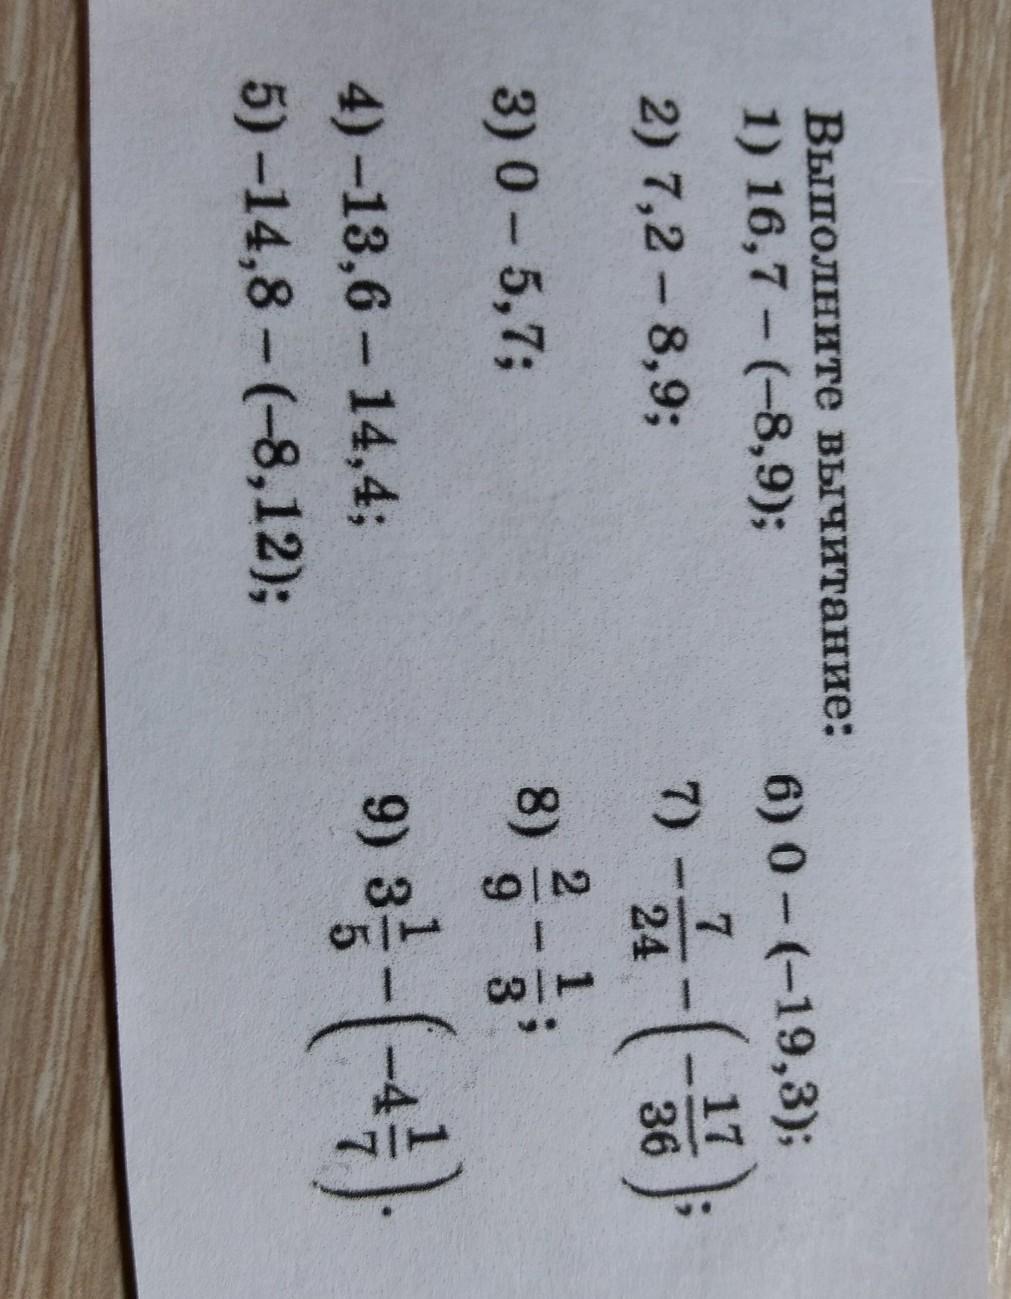 Выполните вычитание:
1) 16,7 – (–8,9);
2) 7,2 – 8,9;
3) 0 – 5,7;
4) –13,6 – 14,4;
5) –14,8 – (–8,12);
6) 0 – (–19,3);
7) –7/24 – (–17/36);
8) 2/9 – 1/3;
9) 3 1/5 – (–4 1/7).